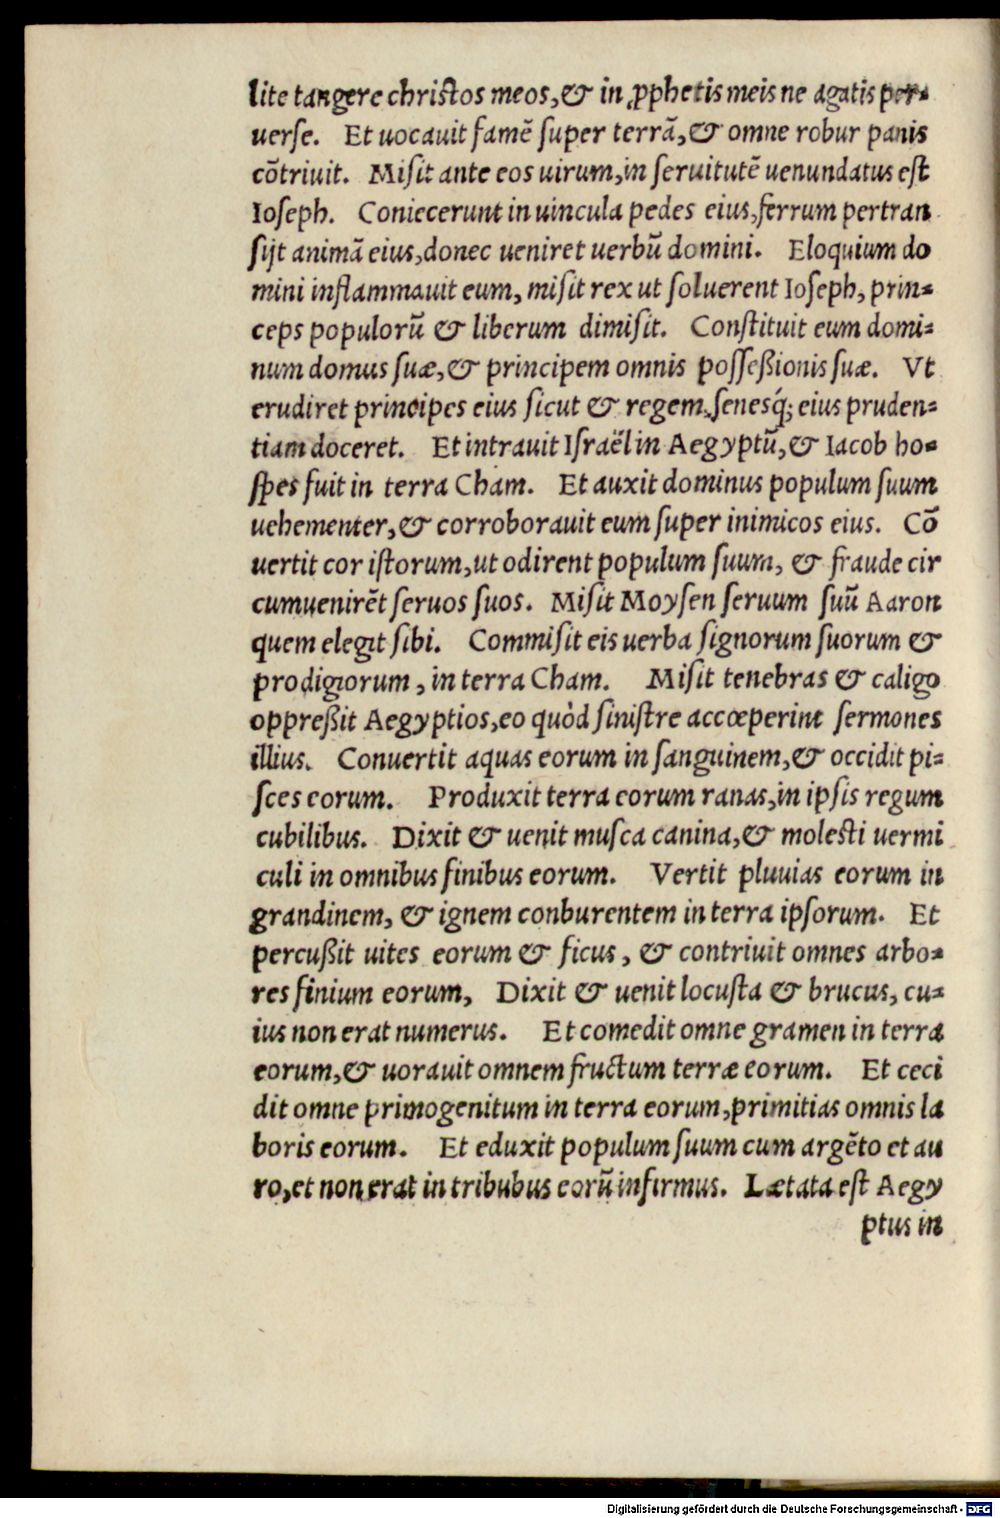 lite tangere christos meos,& in ꝓphetis meis ne agatis per-
uerse. Et uocauit famẽ super terrã,& omne robur panis
cõtriuit. Misit ante eos uirum,in seruitutẽ uenundatus est
Ioseph. Coniecerunt in uincula pedes eius,ferrum pertran
sijt animã eius,donec ueniret uerbũ domini. Eloquium do
mini inflammauit eum, misit rex ut soluerent Ioseph, prin-
ceps populorũ & liberum dimisit. Constituit eum domi-
num domus suæ,& principem omnis posseßionis suæ. Vt
erudiret principes eius sicut & regem,senesq́; eius pruden-
tiam doceret. Et intrauit Israël in Aegyptũ,& Iacob ho-
spes fuit in terra Cham. Et auxit dominus populum suum
uehementer,& corroborauit eum super inimicos eius. Cõ
uertit cor istorum,ut odirent populum suum, & fraude cir
cumuenirẽt seruos suos. Misit Moysen seruum suũ Aaron
quem elegit sibi. Commisit eis uerba signorum suorum &
prodigiorum, in terra Cham. Misit tenebras & caligo
oppreßit Aegyptios,eo quòd sinistre accœperint sermones
illius. Conuertit aquas eorum in sanguinem,& occidit pi-
sces eorum. Produxit terra eorum ranas,in ipsis regum
cubilibus. Dixit & uenit musca canina,& molesti uermi
culi in omnibus finibus eorum. Vertit pluuias eorum in
grandinem, & ignem conburentem in terra ipsorum. Et
percußit uites eorum & ficus, & contriuit omnes arbo-
res finium eorum, Dixit & uenit locusta & brucus, cu-
ius non erat numerus. Et comedit omne gramen in terra
eorum,& uorauit omnem fructum terræ eorum. Et ceci
dit omne primogenitum in terra eorum,primitias omnis la
boris eorum. Et eduxit populum suum cum argẽto et au
ro,et non erat in tribubus eorũ infirmus. Lætata est Aegy
ptus in
Digitalisierung gefördert durch die Deutsche Forschungsgemeinschaft - DFG